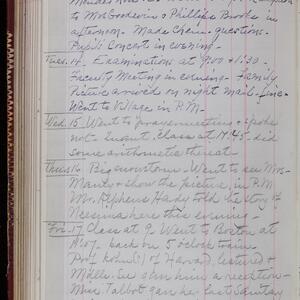 to Mrs Goodwin & Phillips Brooks in
afternoon. Made Chem. questions.
Pupils Concert in evening.
Tues. 14. Examinations at 9:00 & 1:30.
Faculty Meeting in evening. Family
Picture arrived on night mail. fine.
Went to Village in P.M.
Wed. 15. Went to prayermeeting & spoke
not. Class at 7.45. did
some arithmetic
Thurs 16 Big snowstorm. Went to see Mrs
& show the picture, in P.M.
Mr. Alpheus Hardy told the story of
Messina here this evening.
Fri. 17 Class at 9. Went to Boston at
back on 5 o'clock train.
Prof of Harvard lectured &
Mdlle. See 's him a reception
Miss Talbot gave her last Sanitary